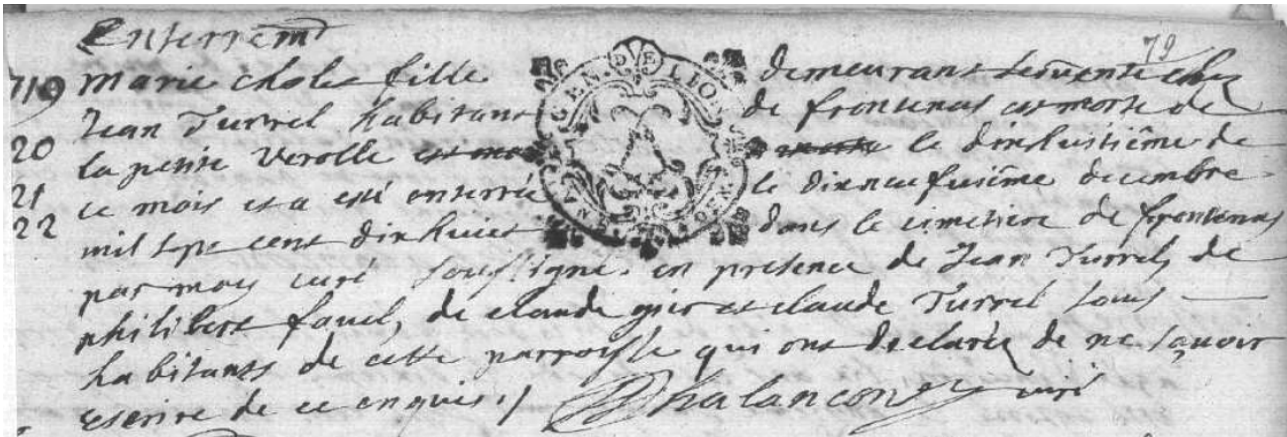 Enterremt
79
719 Marie chol fille demeurant servente chez
Jean Turrel habitant de frontenas est morte de
20 la petite verolle est mo morte le dixhuistiême de
21 ce mois et a esté enterrée le dixneufuiême decembre
22 mil sept cent dixhuict dans le cimetiere de frontenas
par moy curé soussigné. en presence de Jean Turrel, de
philibert favel, de claude et claude Turrel tous
habitants de cette parroisse qui ont declaréz de ne sçavoir
escrire de ce enquis ./ Chalancon curé
GEN. DE LION